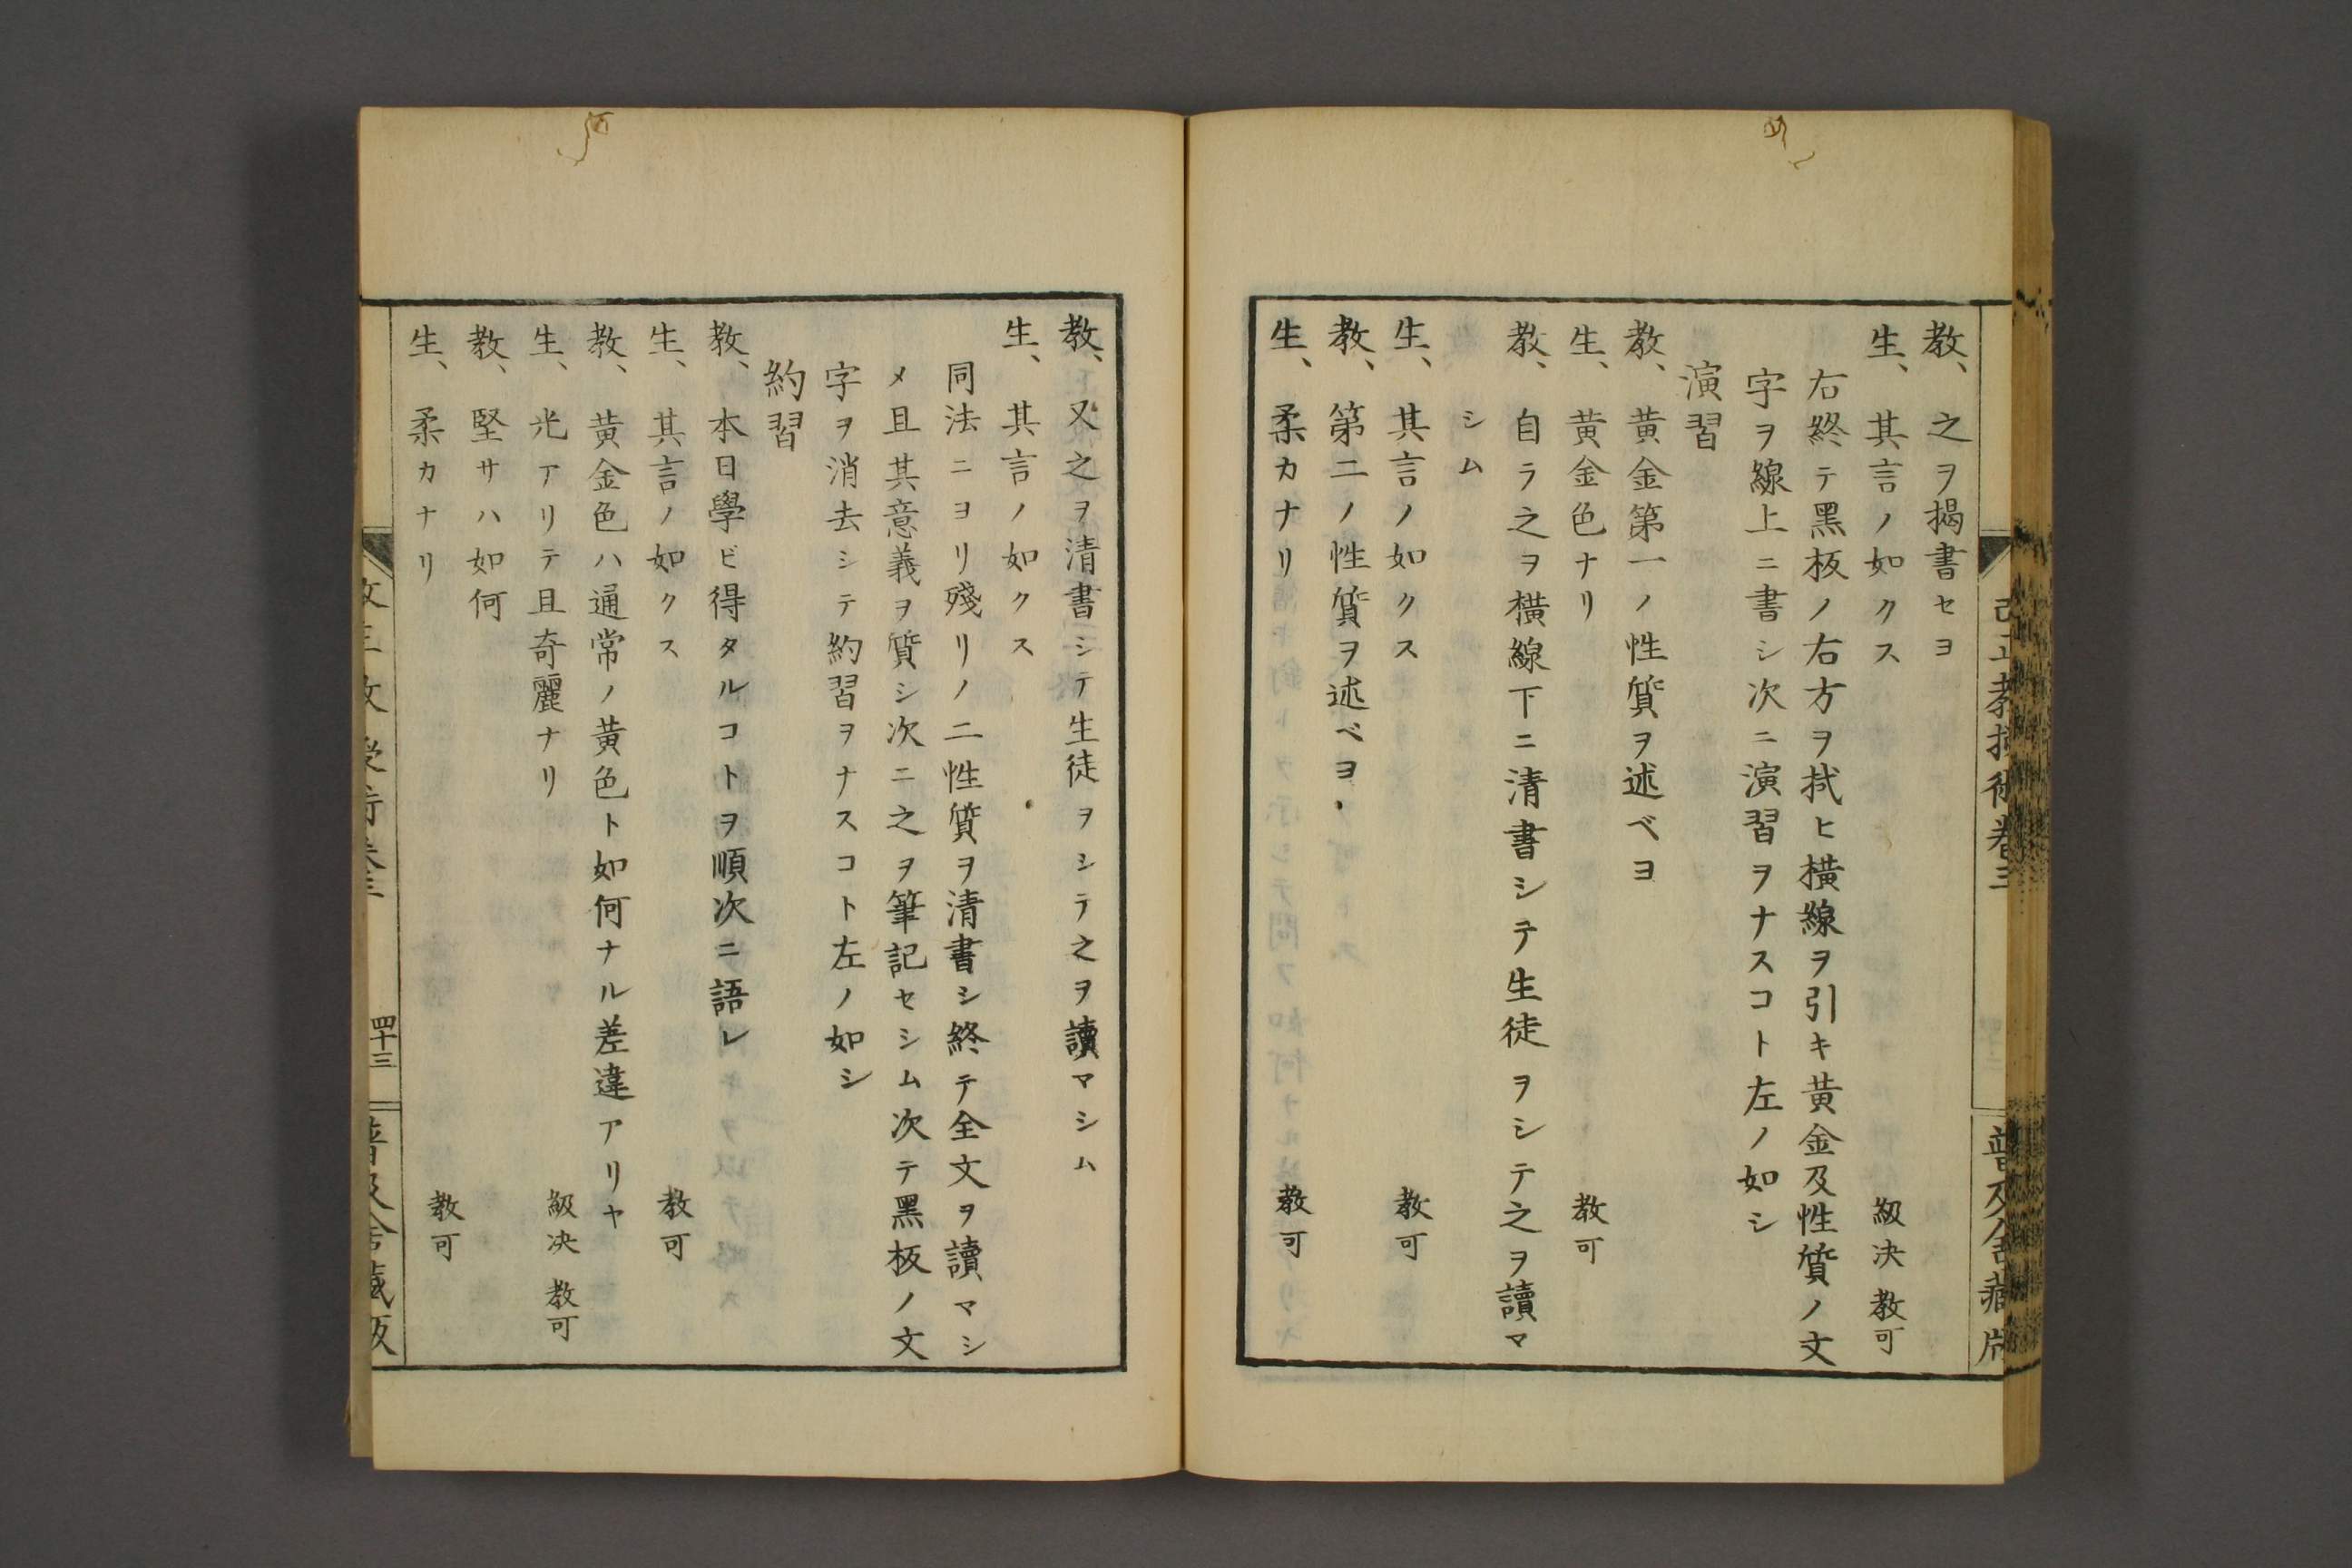 教、之ヲ揭書セヨ
生、其言ノ如クス　級决　教可
右終テ黑板ノ右方ヲ拭ヒ橫線ヲ引キ黃金及性質ノ文
字ヲ線上ニ書シ次ニ演習ヲナスコト左ノ如シ
演習
教、黃金第一ノ性質ヲ述ベヨ
生、黃金色ナリ　教可
教、自ラ之ヲ橫線下ニ清書シテ生徒ヲシテ之ヲ讀マ
シム
生、其言ノ如クス　教可
教、第二ノ性質ヲ述ベヨ
生、柔カナリ　教可
教、又之ヲ清書シテ生徒ヲシテ之ヲ讀マシム
生、其言ノ如クス
同法ニヨリ殘リノ二性質ヲ清書シ終テ全文ヲ讀マシ
メ且其意義ヲ質シ次ニ之ヲ筆記セシム次テ黑板ノ文
字ヲ消去シテ約習ヲナスコト左ノ如シ
約習
教、本日學ビ得タルコトヲ順次ニ語レ
生、其言ノ如クス　教可
教、黃金色ハ通常ノ黃色ト如何ナル差違アリヤ
生、光アリテ且奇麗ナリ　級决　教可
教、堅サハ如何
生、柔カナリ　教可
四十三
普及舍藏版